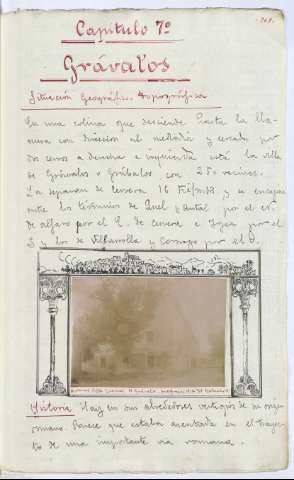 Capitulo 7º
Grávalos
Situación Geográfico Topográfica
En una colina que desciende hasta la lla-
nura con dirección al mediodía y cerrada por
dos cerros a derecha e izquierda está la villa
de Grávalos o Grábalos con 250 vecinos.
La separan de Cervera 16 y se encaja
entre los términos de Quel y Autol por el
de Alfaro por el E. de Cervera e Igea por el
S y los de Villarroya y Cornago por el O.
Historia Hay en sus alrededores vestigios de su origen
romano. Parece que estaba asentada en el trayec-
to de una importante via romana.